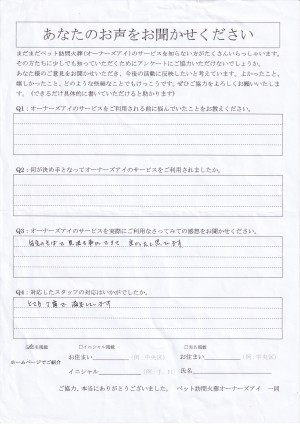 あなたのお声をお聞かせください
まだまだペット訪問火葬(オーナーズアイ)のサービスを知らない方がたくさんいらっしゃいます。
その方たちに少しでも知っていただくためにアンケートにご協力いただけないでしょうか。
あなた様のご意見をお聞かせいただき、今後の活動に反映したいと考えています。よかったこと、
嬉しかったこと、どのような些細なことでもけっこうです。ぜひご協力をよろしくお願いいたします。
(できるだけ具体的に書いていただけると助かります)
Q1：オーナーズアイのサービスをご利用される前に悩んでいたことをお教えください。
Q2：何が決め手となってオーナーズアイのサービスをご利用されましたか。
Q3：オーナーズアイのサービスを実際にご利用なさってみての感想をお聞かせください。
自宅のそばで見送る事ができて 良かったと思ってます
Q4：対応したスタッフの対応はいかがでしたか。
とても丁寧で 満足しています
匿名掲載 □イニシャル掲載 □実名掲載
ホームページでご紹介
お住まい (例：中央区) お住まい (例：中央区)
イニシャル 氏名
ご協力、本当にありがとうございました。 ペット訪問火葬オーナーズアイ 一同